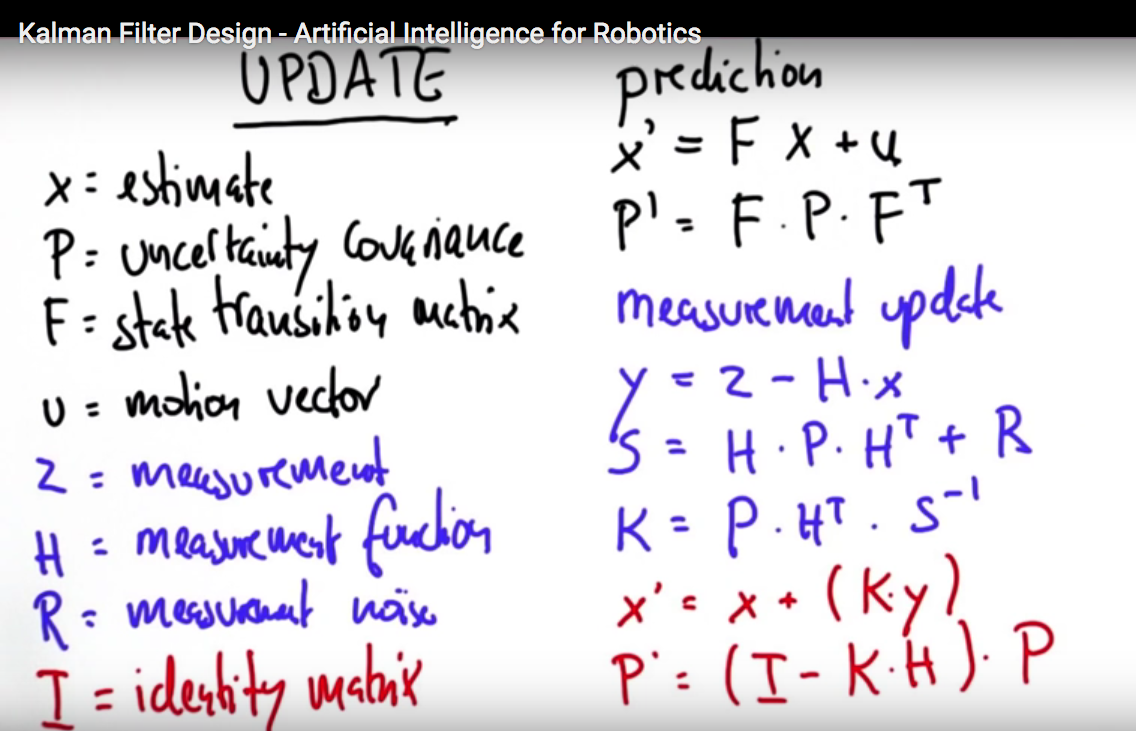 Kalman Filter Design - Artificial Intelligence for Robotics
UPDATE
x = estimate
P = uncertainty covariance
F = state transition matrix
u = motion vector
z = measurement
H = measurement function
R = measurement noise
I = identity matrix
prediction
x' = F x + u
P' = F · P · Fᵀ
measurement update
y = z - H · x
S = H · P · Hᵀ + R
K = P · Hᵀ · S⁻¹
x' = x + (K · y)
P' = (I - K · H) · P